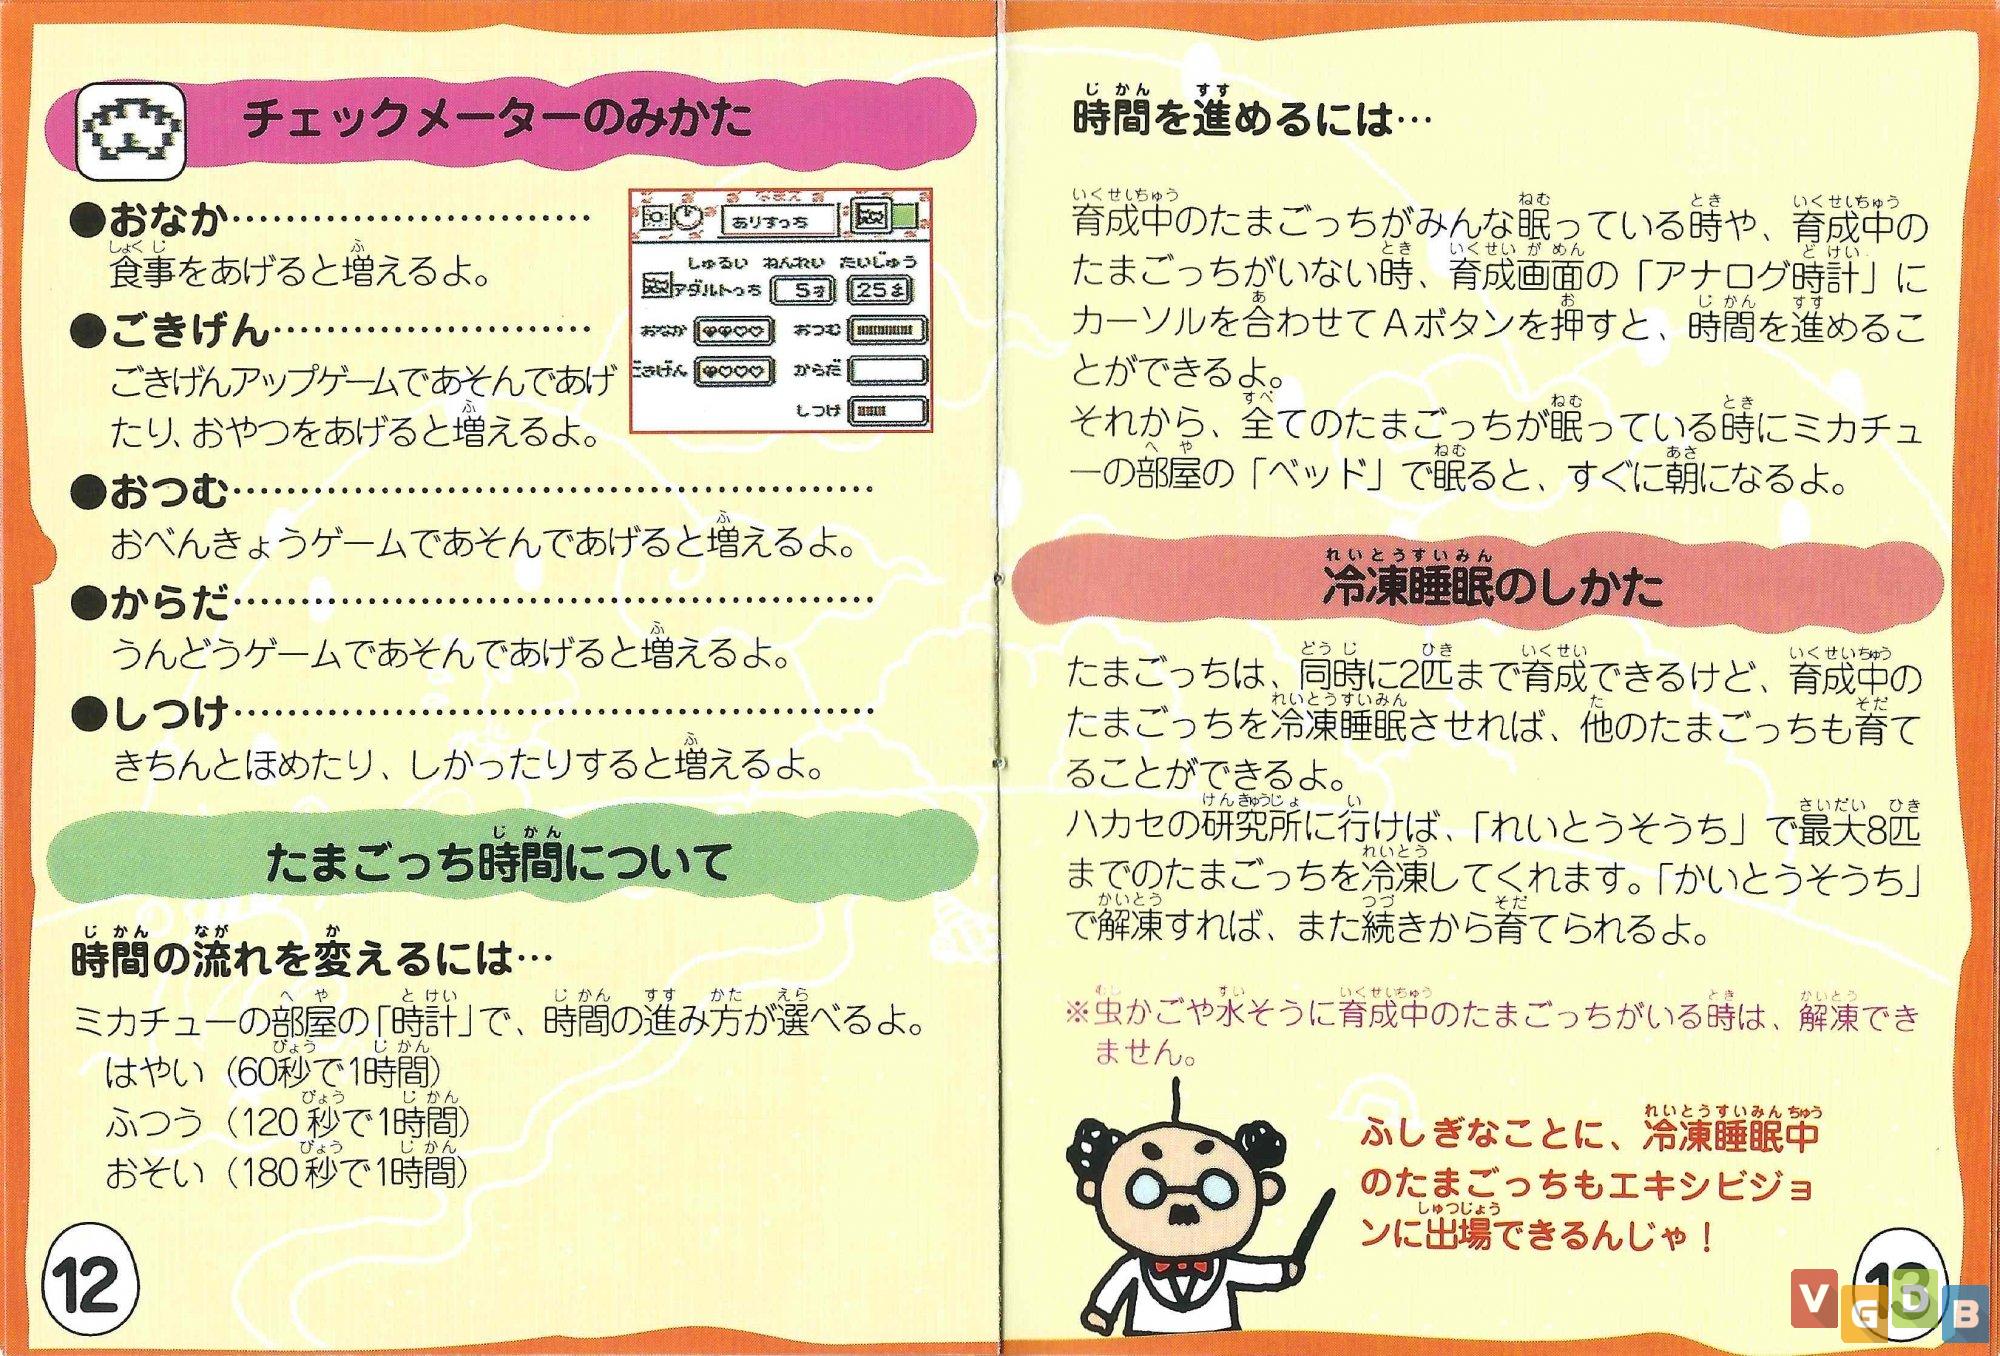 チェックメーターのみかた
●おなか
食事をあげると増えるよ。
●ごきげん
ごきげんアップゲームであそんであげ
たり、おやつをあげると増えるよ。
●おつむ
おべんきょうゲームであそんであげると増えるよ。
●からだ
うんどうゲームであそんであげると増えるよ。
●しつけ
きちんとほめたり、しかったりすると増えるよ。
なまえ
ありすっち
しゅるい ねんれい たいじゅう
アダルトっち 5才 25g
おなか おつむ
ごきげん からだ
しつけ
たまごっち時間について
時間の流れを変えるには…
ミカチューの部屋の「時計」で、時間の進み方が選べるよ。
はやい（60秒で1時間）
ふつう（120秒で1時間）
おそい（180秒で1時間）
12
時間を進めるには…
育成中のたまごっちがみんな眠っている時や、育成中の
たまごっちがいない時、育成画面の「アナログ時計」に
カーソルを合わせてAボタンを押すと、時間を進めるこ
とができるよ。
それから、全てのたまごっちが眠っている時にミカチュ
ーの部屋の「ベッド」で眠ると、すぐに朝になるよ。
冷凍睡眠のしかた
たまごっちは、同時に2匹まで育成できるけど、育成中の
たまごっちを冷凍睡眠させれば、他のたまごっちも育て
ることができるよ。
ハカセの研究所に行けば、「れいとうそうち」で最大8匹
までのたまごっちを冷凍してくれます。「かいとうそうち」
で解凍すれば、また続きから育てられるよ。
※虫かごや水そうに育成中のたまごっちがいる時は、解凍でき
ません。
ふしぎなことに、冷凍睡眠中
のたまごっちもエキシビジョ
ンに出場できるんじゃ！
13
VGDB